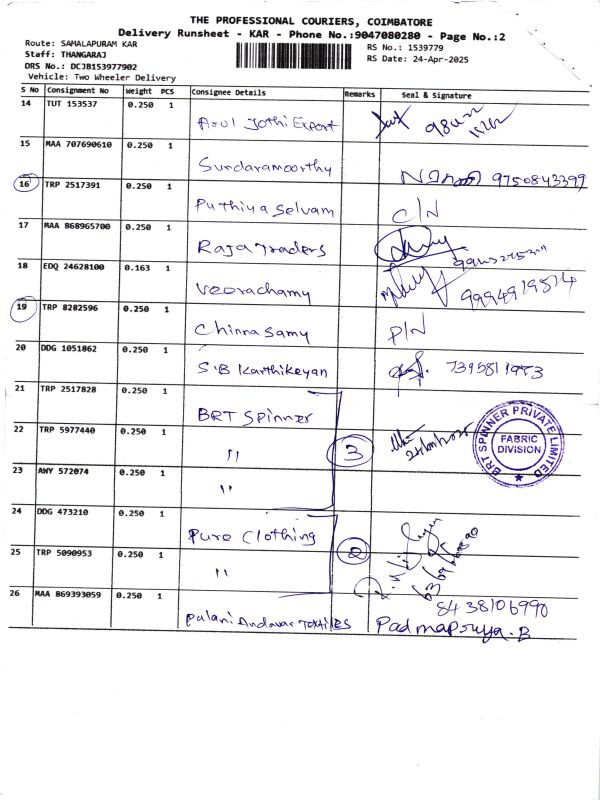 THE PROFESSIONAL COURIERS, COIMBATORE
Delivery Runsheet - KAR - Phone No.:9047080280 - Page No.:2
Route: SAMALAPURAM KAR
Staff: THANGARAJ
DRS No.: DCJB153977902
Vehicle: Two Wheeler Delivery
RS No.: 1539779
RS Date: 24-Apr-2025
S No Consignment No Weight PCS Consignee Details Remarks Seal & Signature
14 TUT 153537 0.250 1 Arul Jothi Export
15 MAA 707690610 0.250 1 Sundaramoorthy 9750843399
16 TRP 2517391 0.250 1 Puthiya Selvam C/N
17 MAA 868965700 0.250 1 Raja Traders
18 EDQ 24628100 0.163 1 Veerachamy 9994919574
19 TRP 8282596 0.250 1 Chinnasamy P/N
20 DDG 1051862 0.250 1 S.B Karthikeyan 7395811973
21 TRP 2517828 0.250 1 BRT Spinner
22 TRP 5977440 0.250 1 " 3
BRT SPINNER PRIVATE LIMITED
FABRIC
DIVISION
23 AWY 572074 0.250 1 "
24 DDG 473210 0.250 1 Pure Clothing
25 TRP 5090953 0.250 1 " 2
26 MAA 869393059 0.250 1 Palani Andavar Textiles
8438106990
Padmapriya.B